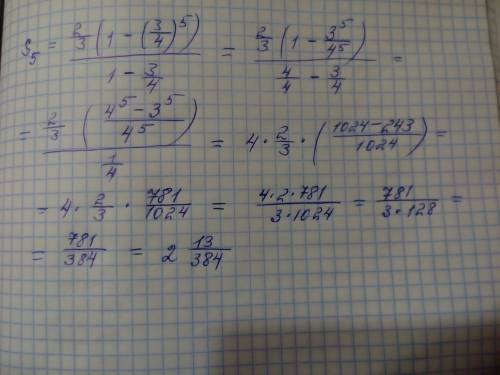 S₅ = (2/3 (1 − (3/4)⁵)) / (1 − 3/4) = (2/3 (1 − 3⁵/4⁵)) / (4/4 − 3/4) =
= (2/3 ((4⁵ − 3⁵)/4⁵)) / (1/4) = 4 · 2/3 · ((1024 − 243)/1024) =
= 4 · 2/3 · 781/1024 = (4 · 2 · 781)/(3 · 1024) = 781/(3 · 128) =
= 781/384 = 2 13/384